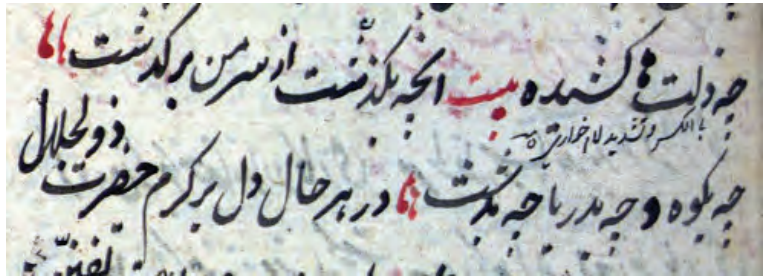 چه ذلت ها کشیده بیت انچه بگذشت از سر من برگذشت
بالکسر و تشدید لام خواری
چه بکوه و چه بدریا چه بدشت در هر حال دل بر کرم حضرت ذوالجلال